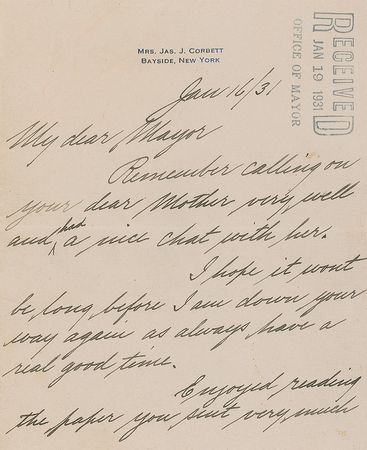 MRS. JAS. J. CORBETT
BAYSIDE, NEW YORK
RECEIVED
JAN 19 1931
OFFICE OF MAYOR
Jan 16/31
My dear Mayor
Remember calling on
your dear Mother very well
and had a nice chat with her.
I hope it wont
be long before I am down your
way again as always have a
real good time.
Enjoyed reading
the paper you sent very much